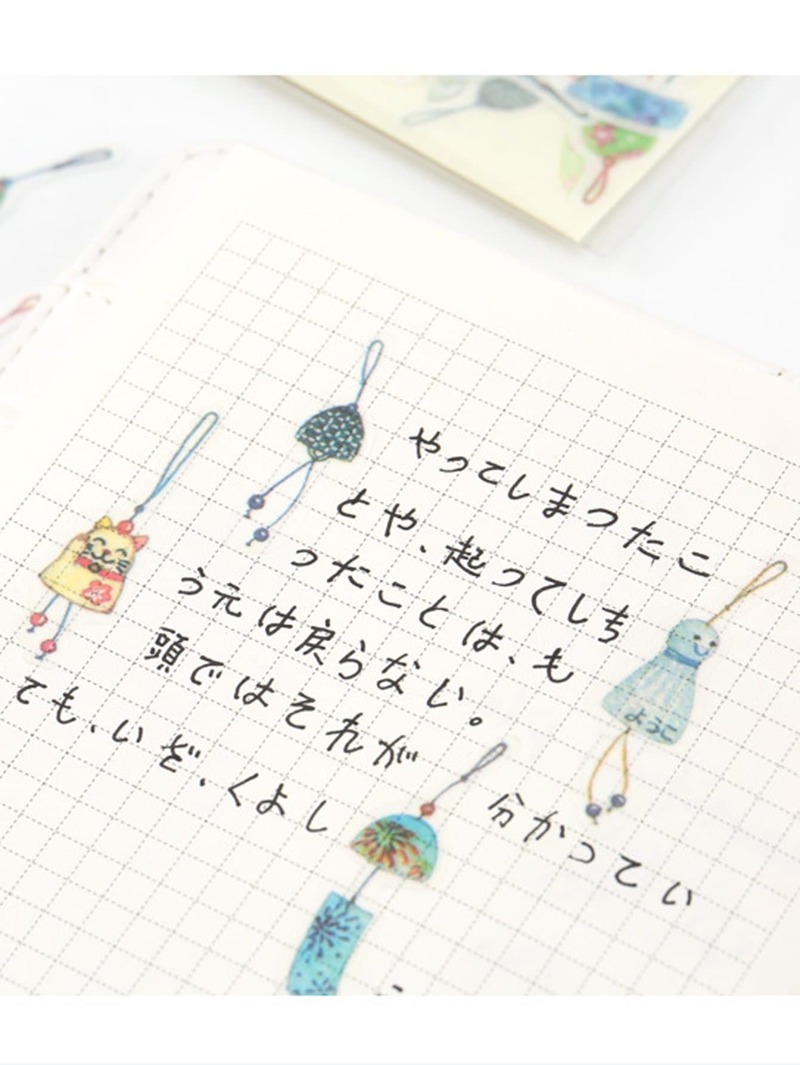 やってしまったこ
とや、起ってしち
ったことは、も
う元は戻らない。
頭ではそれが分かってい
ても、いざ、くよし
ようこ